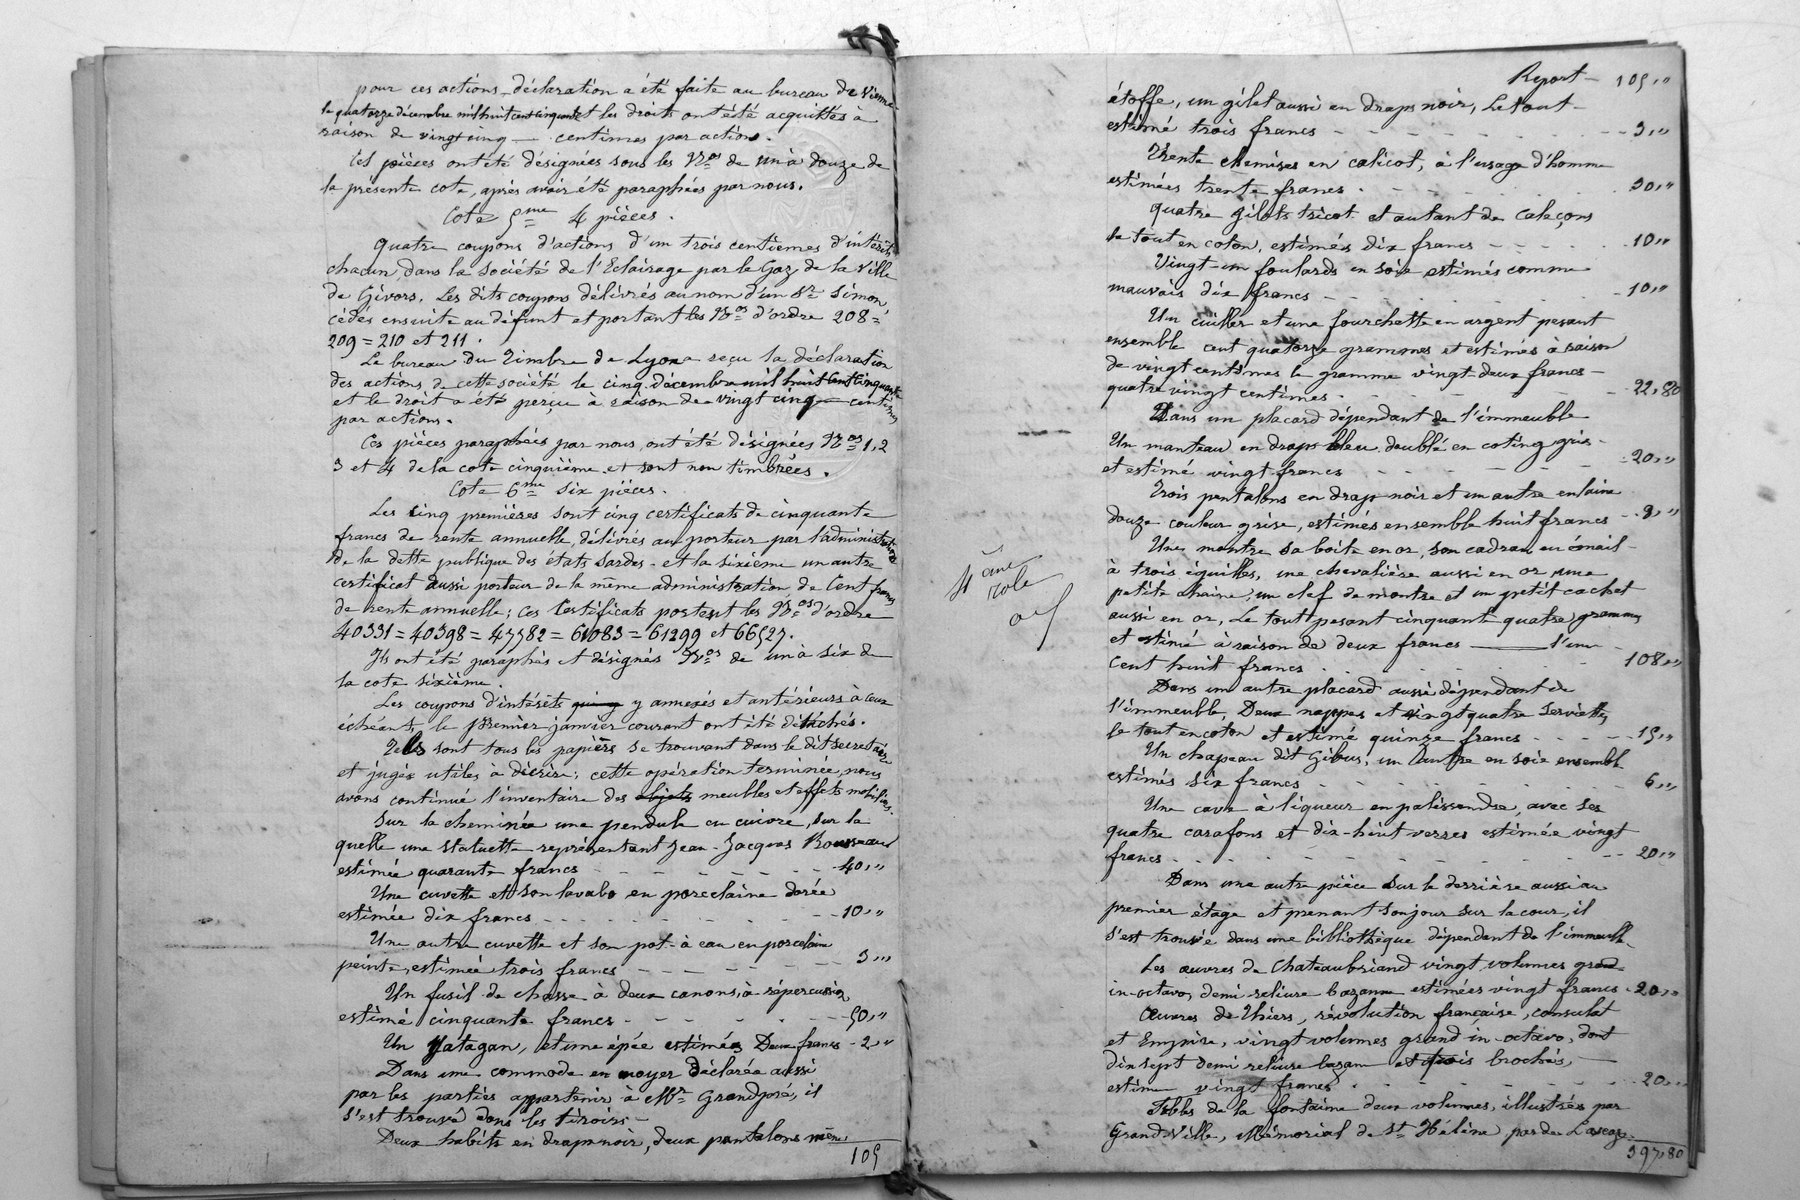 pour ces actions, déclaration a été faite au bureau de Vienne
le quatorze décembre mil huit cent cinquante et les droits ont été acquittés à
raison de vingt cinq — centimes par action.
Ces pièces ont été désignées sous les Nos de un à douze de
la présente cote, après avoir été paraphées par nous.
Cote 5me 4 pièces.
Quatre coupons d'actions d'un trois centiemes d'intérêts
chacun, dans la société de l'Eclairage par le Gaz de la Ville
de Givors. Les dits coupons délivrés au nom d'un Sr Simon,
cédés ensuite au défunt et portant les Nos d'ordre 208=
209=210 et 211.
Le bureau du Timbre de Lyon a reçu la déclaration
des actions de cette société le cinq décembre mil huit cent cinquante
et le droit a été perçu à raison de vingt cinq — centimes
par actions.
Ces pièces paraphées par nous, ont été désignées Nos 1, 2
3 et 4 de la cote cinquième et sont non timbrées.
Cote 6me six pièces.
Les cinq premières sont cinq certificats de cinquante
francs de rente annuelle, délivrés au porteur par l'administration
de la dette publique des états Sardes - et la sixième un autre
certificat aussi porteur de la même administration, de Cent francs
de rente annuelle; ces Certificats portent les Nos d'ordre
40331=40398=47782=61083=61299 et 66527.
Ils ont été paraphés et désignés Nos de un à six de
la cote sixième.
Les coupons d'intérêts y annexés et antérieurs à ceux
échéant le premier janvier courant ont été détachés.
Tels sont tous les papiers se trouvant dans le dit secretaire
et jugés utiles à décrire; cette opération terminée, nous
avons continué l'inventaire des objets meubles et effets mobiliers.
Sur la cheminée une pendule en cuivre, sur la
quelle une statuette représentant Jean-Jacques Rousseau
estimée quarante francs - - - - - 40,"
Une cuvette et son lavabo en porcelaine dorée
estimée dix francs - - - - - 10,"
Une autre cuvette et son pot-à eau en porcelaine
peinte, estimée trois francs - - - - - 3,"
Un fusil de chasse à deux canons, à répercussion
estimé cinquante francs - - - - - 50,"
Un Yatagan, et une épée estimés Deux francs - 2,"
Dans une commode en noyer déclarée aussi
par les parties appartenir à Mr Grandpré, il
s'est trouvé dans les tiroirs -
Deux habits en drap noir, deux pantalons même
105
Report - 105,"
étoffe, un gilet aussi en drap noir, le tout -
estimé trois francs - - - - - 3,"
Trente chemises en calicot, à l'usage d'homme
estimées trente francs - - - - - 30,"
Quatre gilets tricot et autant de caleçons
le tout en coton, estimés dix francs - - - - - 10,"
Vingt-un foulards en soie estimés comme
mauvais dix francs - - - - - 10,"
Un cuiller et une fourchette en argent pesant
ensemble cent quatorze grammes et estimés à raison
de vingt centimes le gramme vingt-deux francs -
quatre vingt centimes - - - - - 22,80
Dans un placard dépendant de l'immeuble
Un manteau en drap bleu doublé en coting gris -
et estimé vingt francs - - - - - 20,"
Trois pantalons en drap noir et un autre en laine
douze couleur grise, estimés ensemble huit francs - 8,"
Une montre sa boite en or, son cadran en émail -
à trois éguilles, une chevalière aussi en or, une
petite chaine, un clef de montre et un petit cachet
aussi en or, le tout pesant cinquant quatre grammes
et estimé à raison de deux francs — l'un -
cent huit francs - - - - - 108,"
4ème
role
Dans un autre placard aussi dépendant de
l'immeuble, Deux nappes et vingt quatre serviettes
le tout en coton et estimé quinze francs - - - - - 15,"
Un chapeau dit Gibus, un autre en soie ensemble
estimés six francs - - - - - 6,"
Une cave à liqueur en palissandre, avec ses
quatre carafons et dix-huit verres estimée vingt
francs - - - - - 20,"
Dans une autre pièce sur le derrière aussi au
premier étage et prenant son jour sur la cour, il
s'est trouvé dans une bibliothèque dépendant de l'immeuble
Les œuvres de Chateaubriand vingt volumes grand
in-octavo, demi reliure bazanne estimées vingt francs - 20,"
Œuvres de Thiers, révolution française, consulat
et Empire, vingt volumes grand in-octavo, dont
dix sept demi reliure bazan et trois brochés, —
estimé vingt francs - - - - - 20,"
Fables de la fontaine deux volumes, illustrés par
Grand-Ville, Mémorial de St Hélène par de Lascaz
397,80